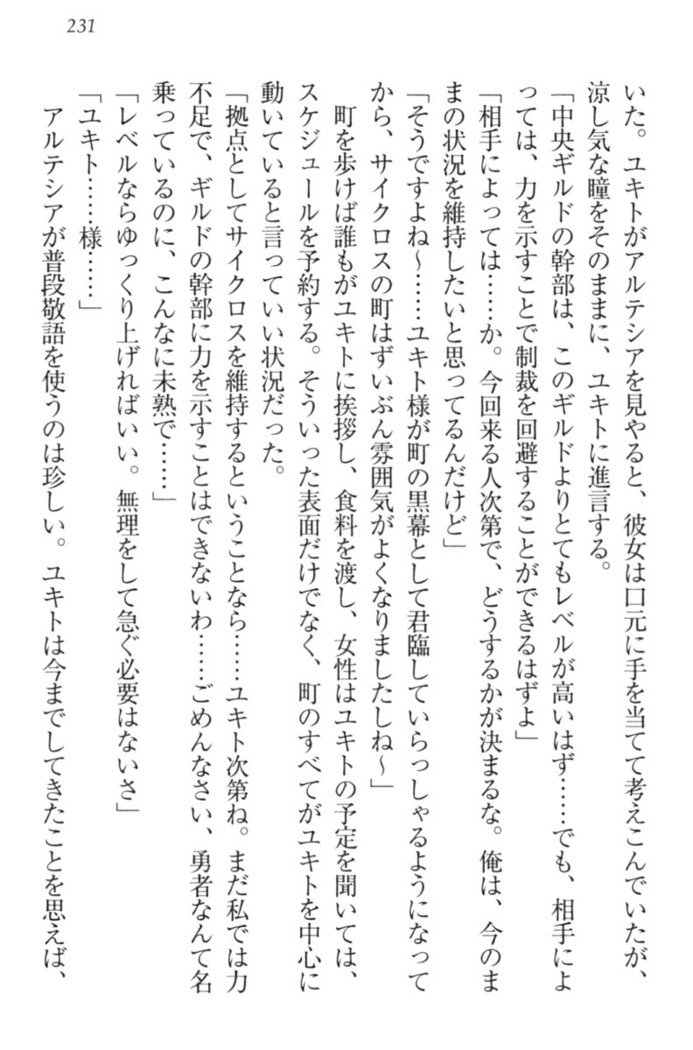 231
いた。ユキトがアルテシアを見やると、彼女は口元に手を当てて考えこんでいたが、
涼し気な瞳をそのままに、ユキトに進言する。
「中央ギルドの幹部は、このギルドよりとてもレベルが高いはず……でも、相手によ
っては、力を示すことで制裁を回避することができるはずよ」
「相手によっては……か。今回来る人次第で、どうするかが決まるな。俺は、今のま
まの状況を維持したいと思ってるんだけど」
「そうですよね～……ユキト様が町の黒幕として君臨していらっしゃるようになって
から、サイクロスの町はずいぶん雰囲気がよくなりましたしね～」
町を歩けば誰もがユキトに挨拶し、食料を渡し、女性はユキトの予定を聞いては、
スケジュールを予約する。そういった表面だけでなく、町のすべてがユキトを中心に
動いていると言っていい状況だった。
「拠点としてサイクロスを維持するということなら……ユキト次第ね。まだ私では力
不足で、ギルドの幹部に力を示すことはできないわ……ごめんなさい、勇者なんて名
乗っているのに、こんなに未熟で……」
「レベルならゆっくり上げればいい。無理をして急ぐ必要はないさ」
「ユキト……様……」
アルテシアが普段敬語を使うのは珍しい。ユキトは今までしてきたことを思えば、